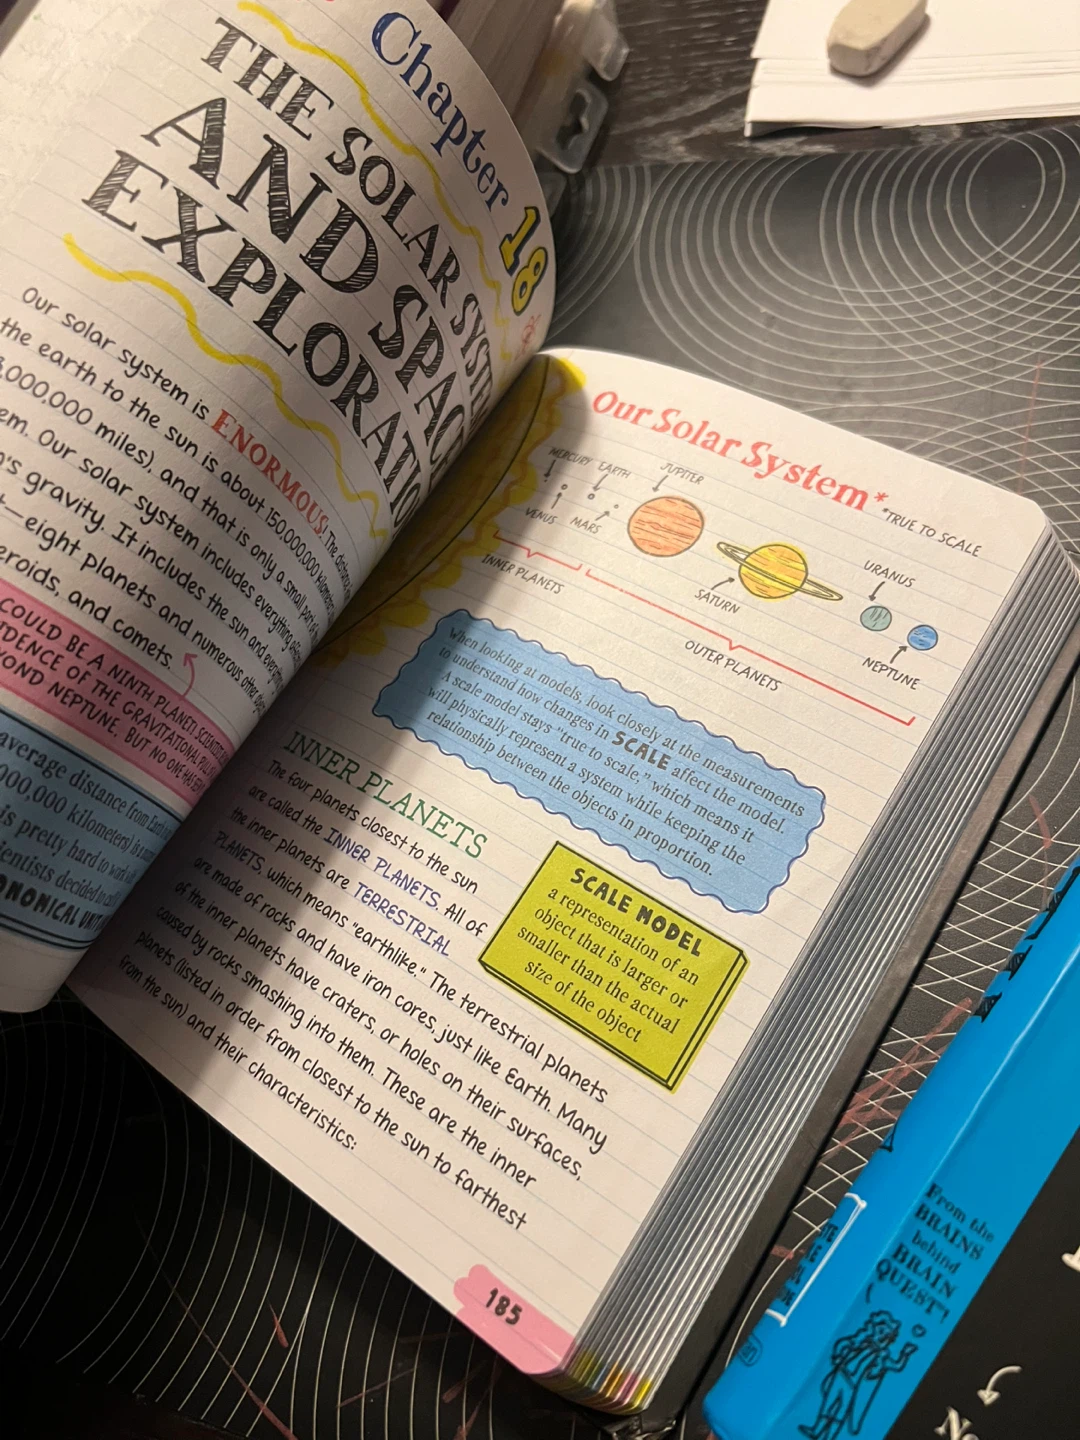 Chapter 18
THE SOLAR SYSTE
AND SPAC
EXPLORATIO
Our solar system is ENORMOUS! The distance
the earth to the sun is about 150,000,000 kilomet
,000,000 miles), and that is only a small part
em. Our solar system includes everything
's gravity. It includes the sun and every
t—eight planets and numerous other
eroids, and comets.
COULD BE A NINTH PLANET! SCIENTISTS
IDENCE OF THE GRAVITATIONAL PULL
YOND NEPTUNE, BUT NO ONE HAS
average distance from Earth
000,000 kilometers) is
is pretty hard to work
ientists decided to call
ONOMICAL UNIT
Our Solar System*
*TRUE TO SCALE
MERCURY
EARTH
JUPITER
VENUS
MARS
SATURN
URANUS
NEPTUNE
INNER PLANETS
OUTER PLANETS
When looking at models, look closely at the measurements
to understand how changes in SCALE affect the model.
A scale model stays "true to scale," which means it
will physically represent a system while keeping the
relationship between the objects in proportion.
INNER PLANETS
The four planets closest to the sun
are called the INNER PLANETS. All of
the inner planets are TERRESTRIAL
PLANETS, which means "earthlike." The terrestrial planets
are made of rocks and have iron cores, just like Earth. Many
of the inner planets have craters, or holes on their surfaces,
caused by rocks smashing into them. These are the inner
planets (listed in order from closest to the sun to farthest
from the sun) and their characteristics:
SCALE MODEL
a representation of an
object that is larger or
smaller than the actual
size of the object
185
From the
BRAINS
behind
BRAIN
QUEST